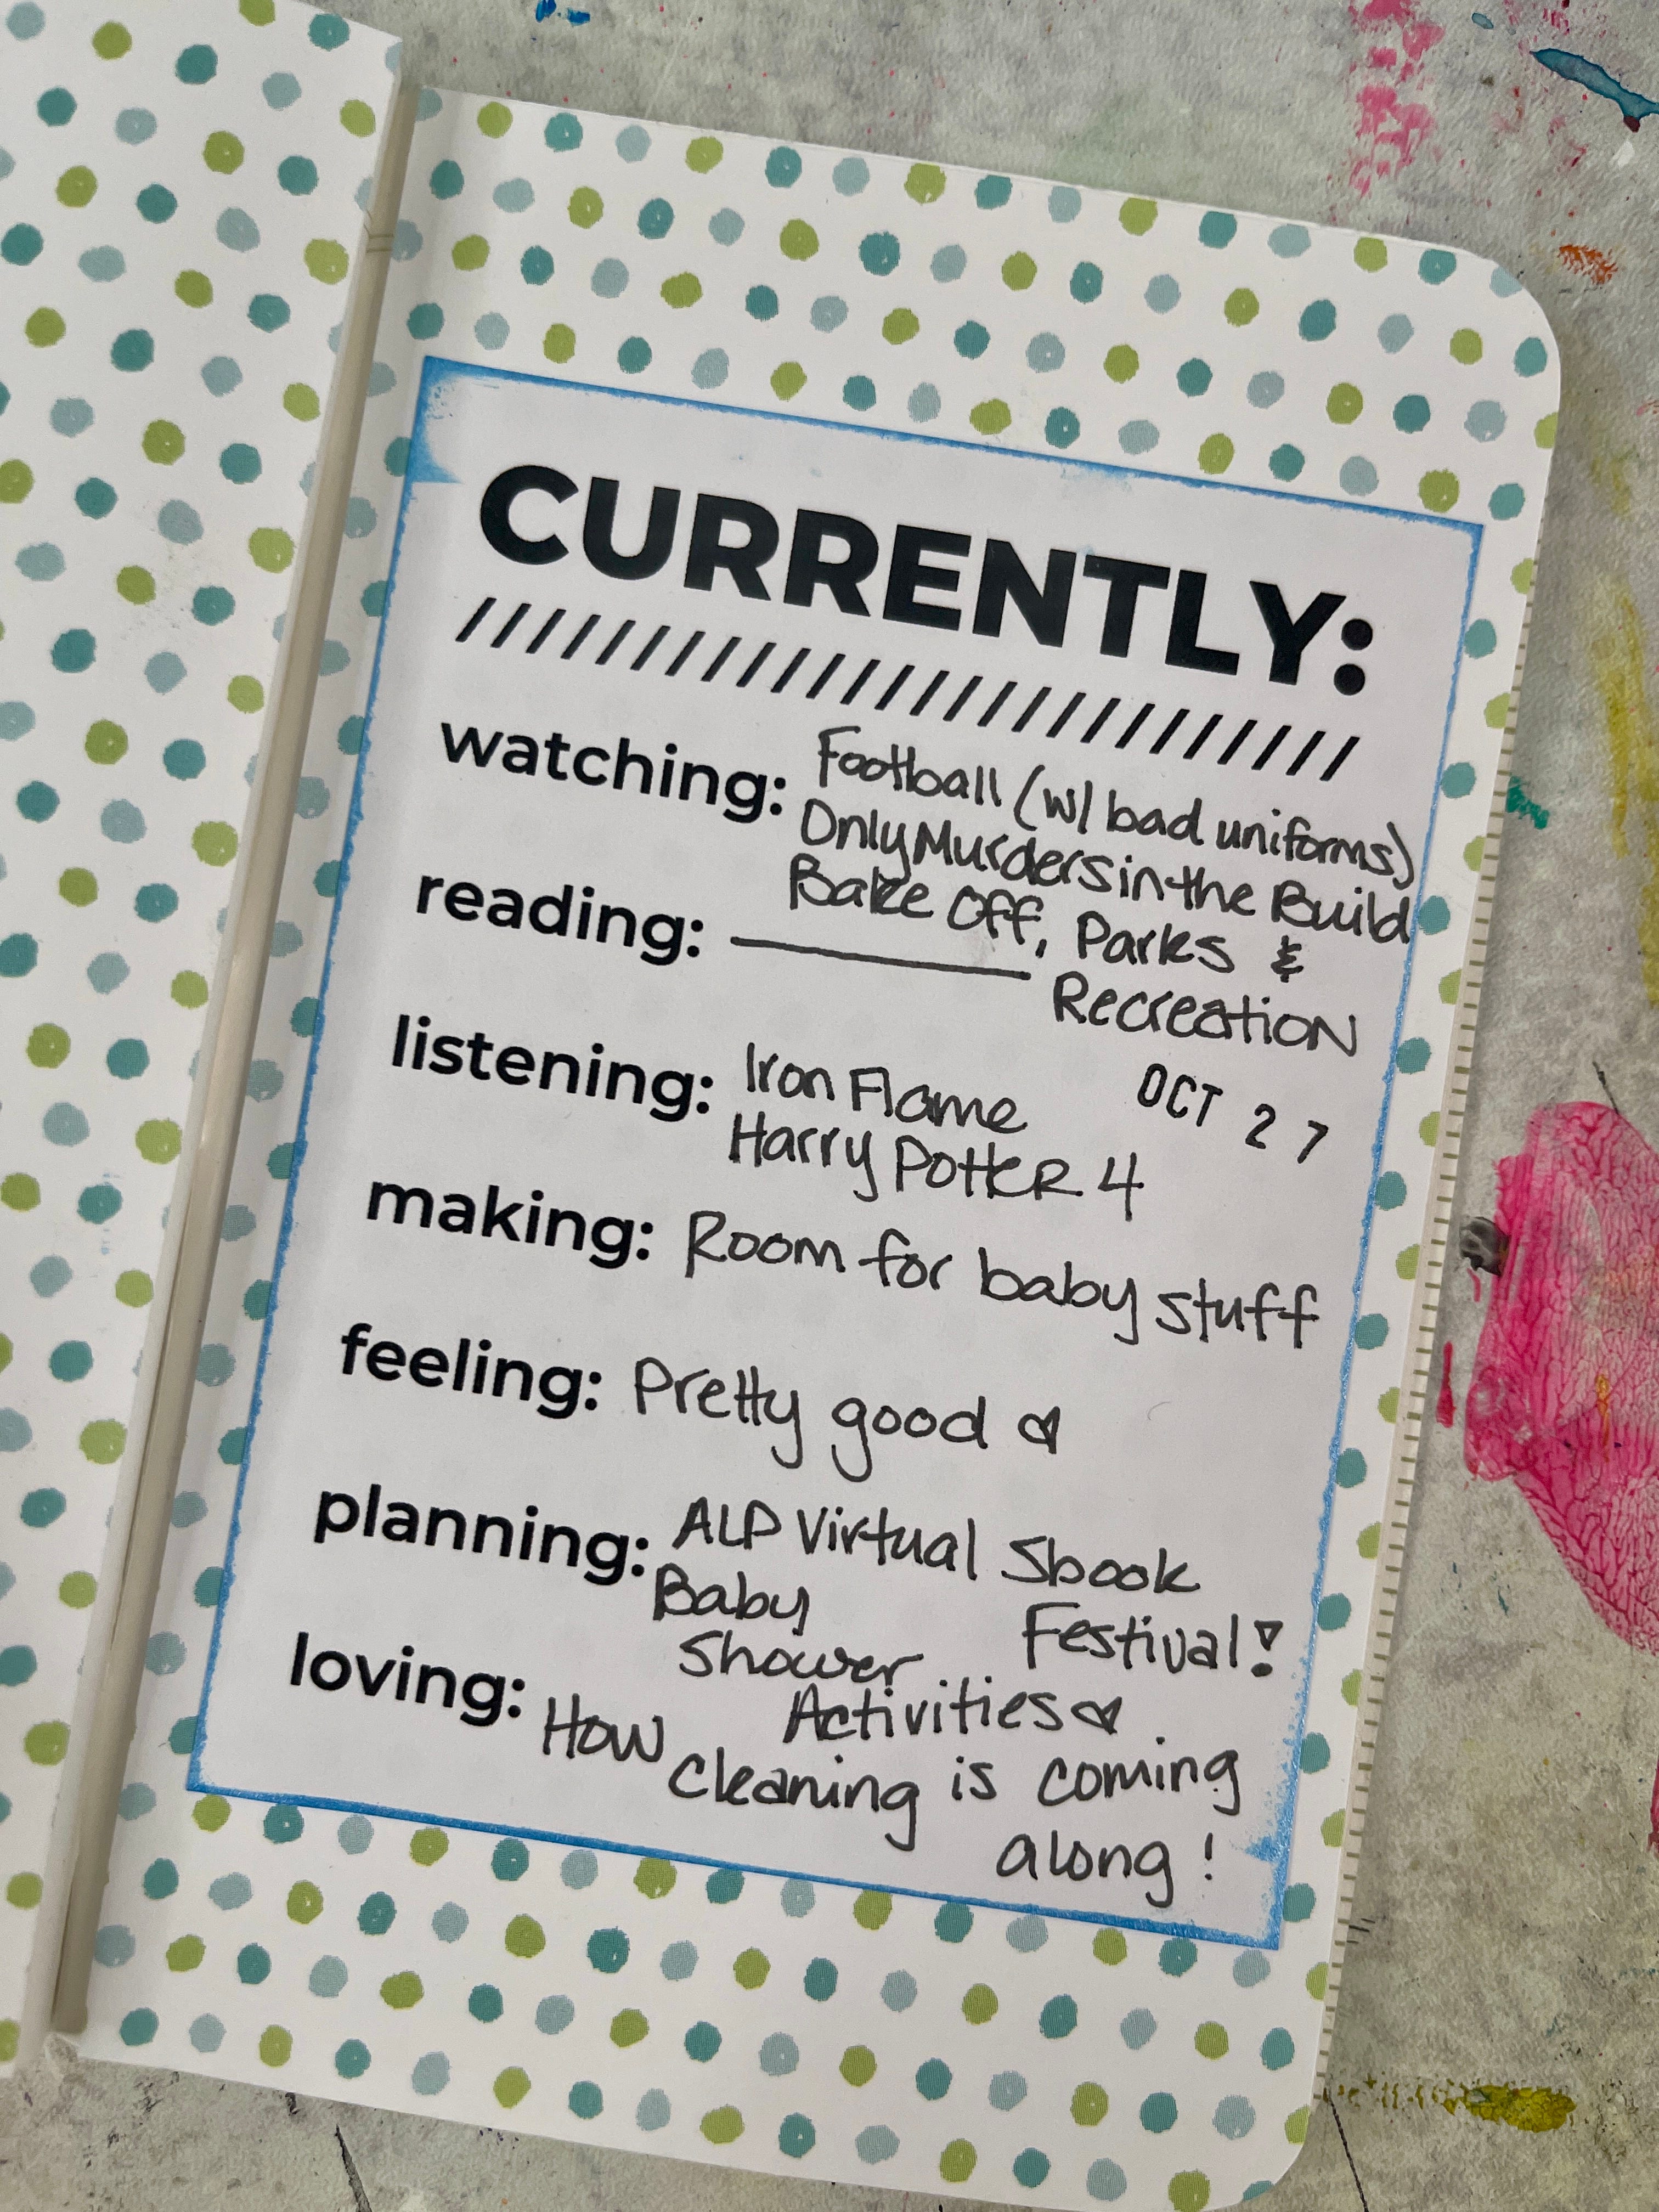 CURRENTLY:
watching: Football (w/ bad uniforms)
Only Murders in the Build
Bake Off, Parks &
Recreation
reading:
listening: Iron Flame
Harry Potter 4
OCT 27
making: Room for baby stuff
feeling: Pretty good
planning: ALP Virtual Sbook
Festival!
Baby
Shower
Activities
loving: How
cleaning is coming
along!